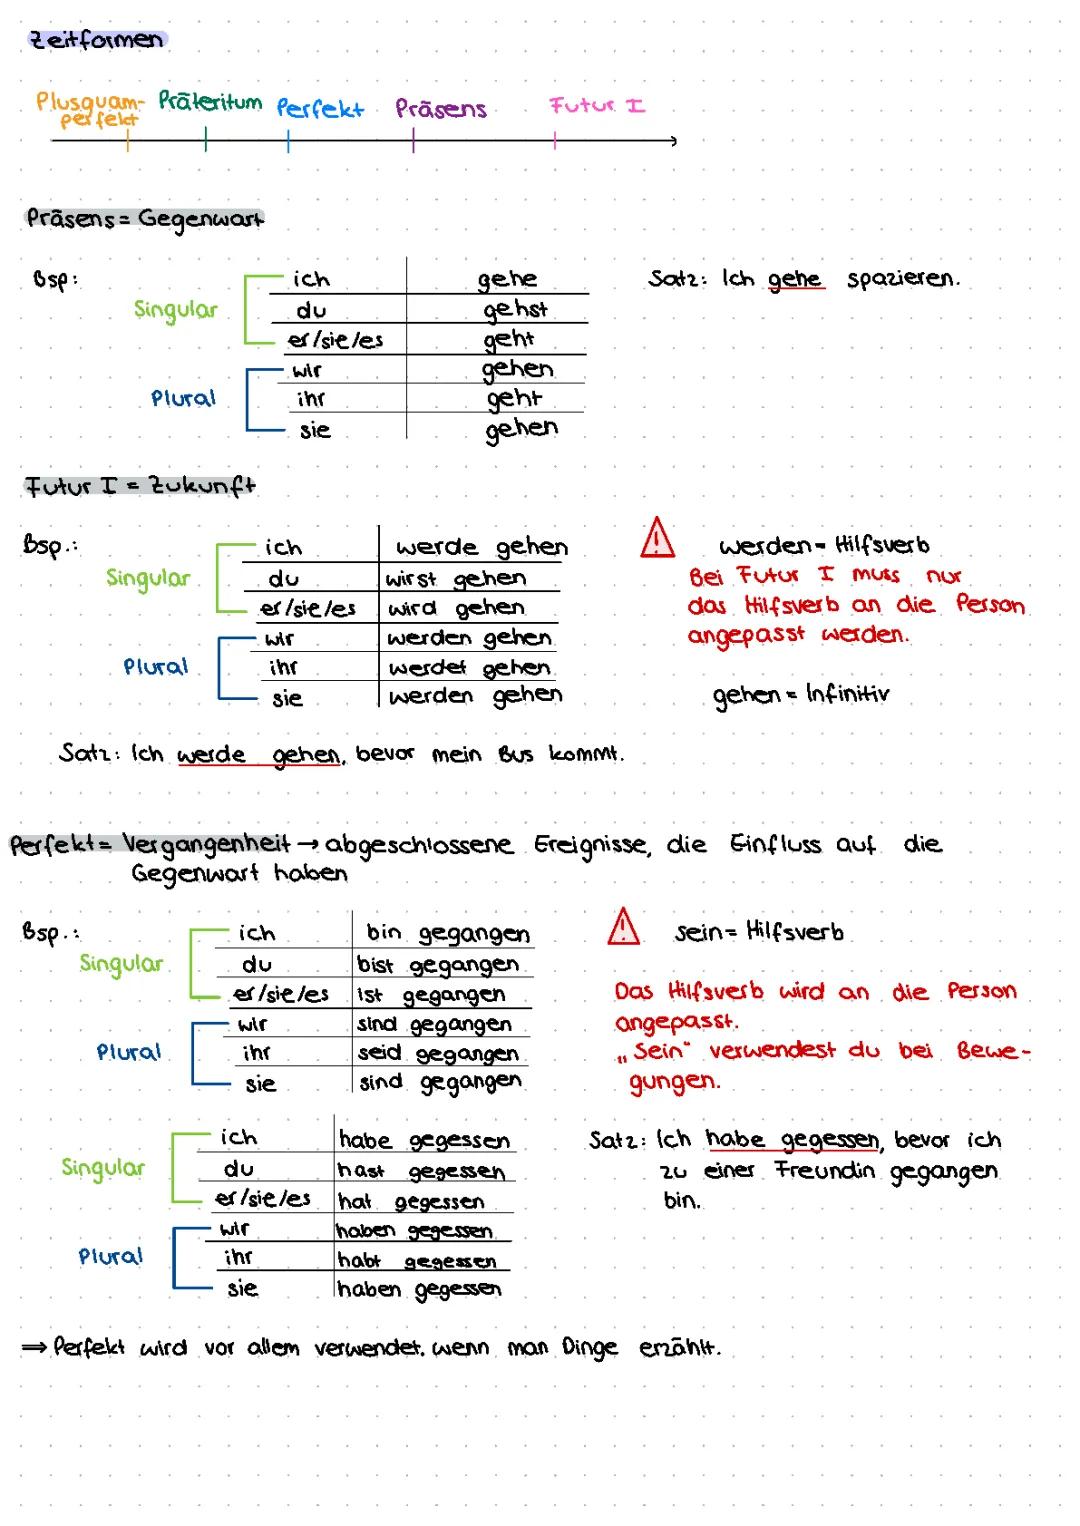 Zeitformen
Plusquam- Präteritum Perfekt Präsens Futur I
perfekt
Präsens = Gegenwart
Bsp: ich gehe Satz: Ich gehe spazieren.
Singular du gehst
er/sie/es geht
wir gehen
Plural ihr geht
sie gehen
Futur I = Zukunft
Bsp.: ich werde gehen werden = Hilfsverb
Singular du wirst gehen Bei Futur I muss nur
er/sie/es wird gehen das Hilfsverb an die Person
wir werden gehen angepasst werden.
Plural ihr werdet gehen
sie werden gehen gehen = Infinitiv
Satz: Ich werde gehen, bevor mein Bus kommt.
Perfekt = Vergangenheit → abgeschlossene Ereignisse, die Einfluss auf die
Gegenwart haben
Bsp.: ich bin gegangen sein = Hilfsverb
Singular du bist gegangen
er/sie/es ist gegangen Das Hilfsverb wird an die Person
wir sind gegangen angepasst.
Plural ihr seid gegangen „Sein" verwendest du bei Bewe-
sie sind gegangen gungen.
ich habe gegessen Satz: Ich habe gegessen, bevor ich
Singular du hast gegessen zu einer Freundin gegangen
er/sie/es hat gegessen bin.
wir haben gegessen
Plural ihr habt gegessen
sie haben gegessen
⇒ Perfekt wird vor allem verwendet, wenn man Dinge erzählt.